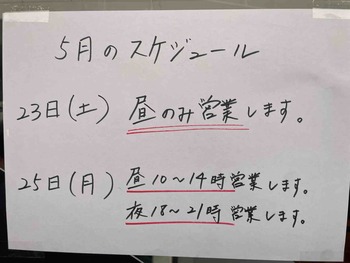 5月のスケジュール
23日(土) 昼のみ営業します。
25日(月) 昼10〜14時営業します。
夜18〜21時営業します。